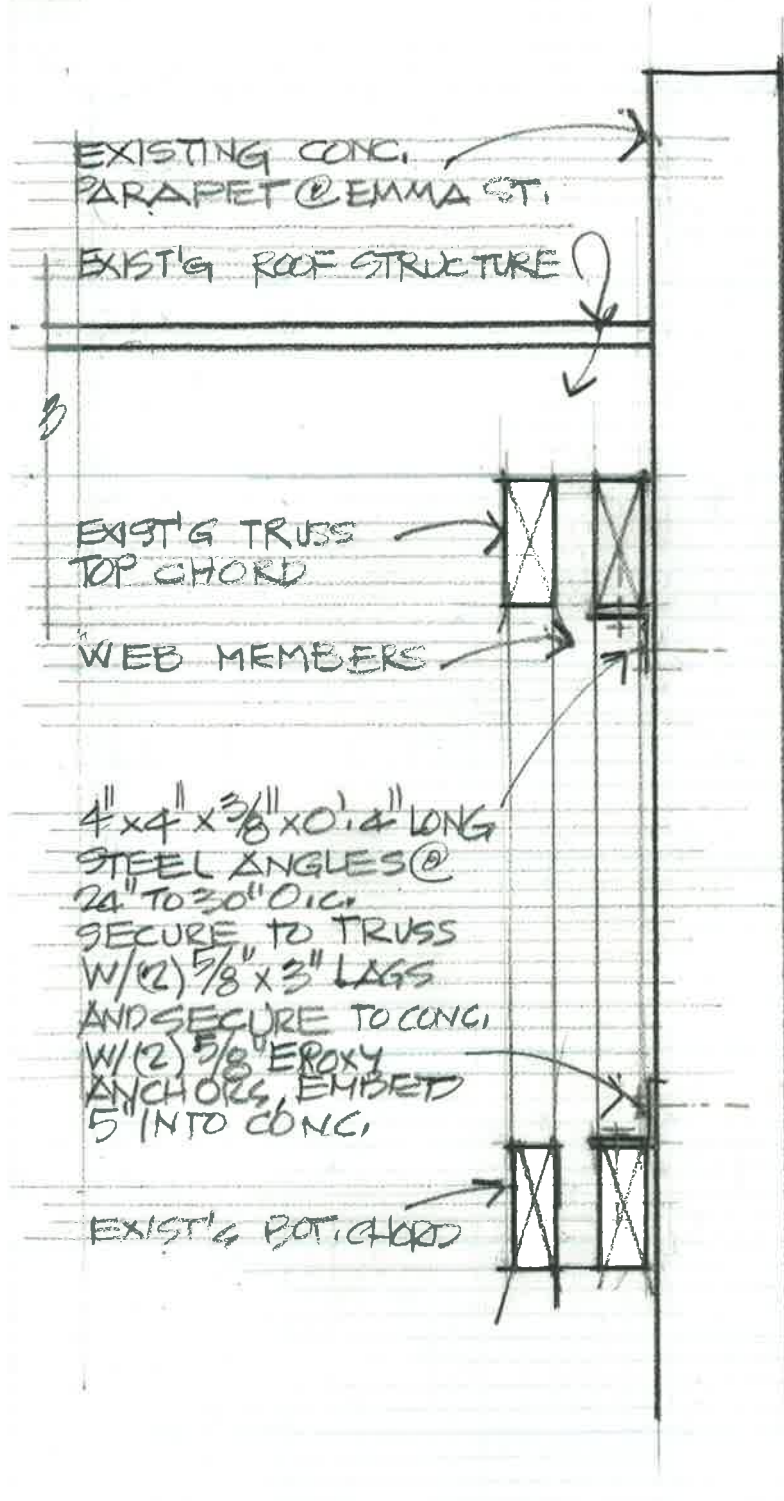 EXISTING CONC.
PARAPET @ EMMA ST.
EXIST'G ROOF STRUCTURE
EXIST'G TRUSS
TOP CHORD
WEB MEMBERS
4" x 4" x 3/8" x 0'.4" LONG
STEEL ANGLES @
24" TO 30" O.C.
SECURE TO TRUSS
W/(2) 5/8" x 3" LAGS
AND SECURE TO CONC.
W/(2) 5/8" EPOXY
ANCHORS, EMBED
5" INTO CONC.
EXIST'G BOT. CHORD